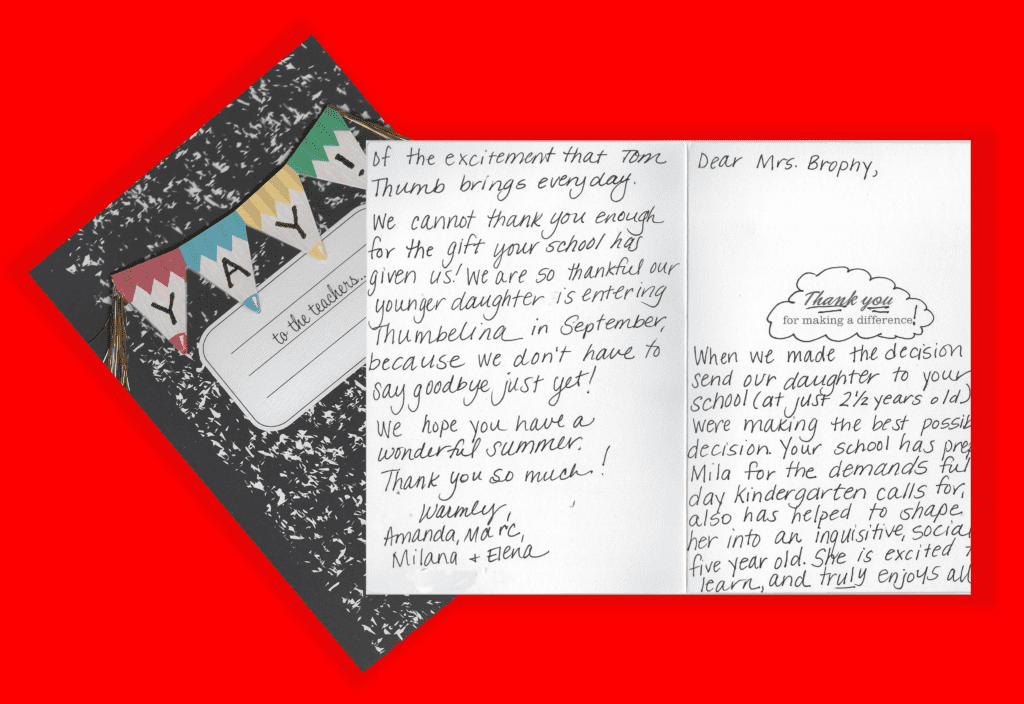 YAY!
to the teachers...
Dear Mrs. Brophy,
Thank you
for making a difference!
When we made the decision
send our daughter to your
school (at just 2½ years old)
were making the best possib
decision. Your school has pre
Mila for the demands ful
day kindergarten calls for,
also has helped to shape
her into an inquisitive, social
five year old. She is excited t
learn, and truly enjoys all
of the excitement that Tom
Thumb brings everyday.
We cannot thank you enough
for the gift your school has
given us! We are so thankful our
younger daughter is entering
Thumbelina in September,
because we don't have to
say goodbye just yet!
We hope you have a
wonderful summer.
Thank you so much!
Warmly,
Amanda, Marc,
Milana + Elena